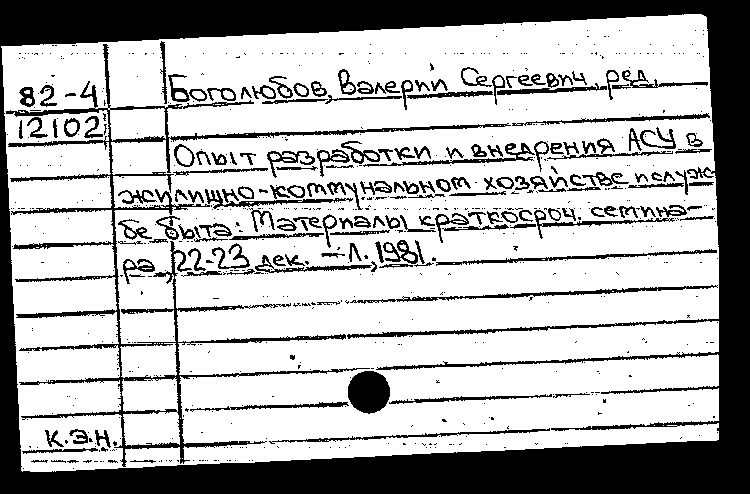 82-4 Боголюбов, Валерий Сергеевич, ред.
12102
Опыт разработки и внедрения АСУ в
жилищно-коммунальном хозяйстве и служ
бе быта: Материалы краткосроч. семина-
ра, 22-23 дек. – Л., 1981.
К.Э.Н.